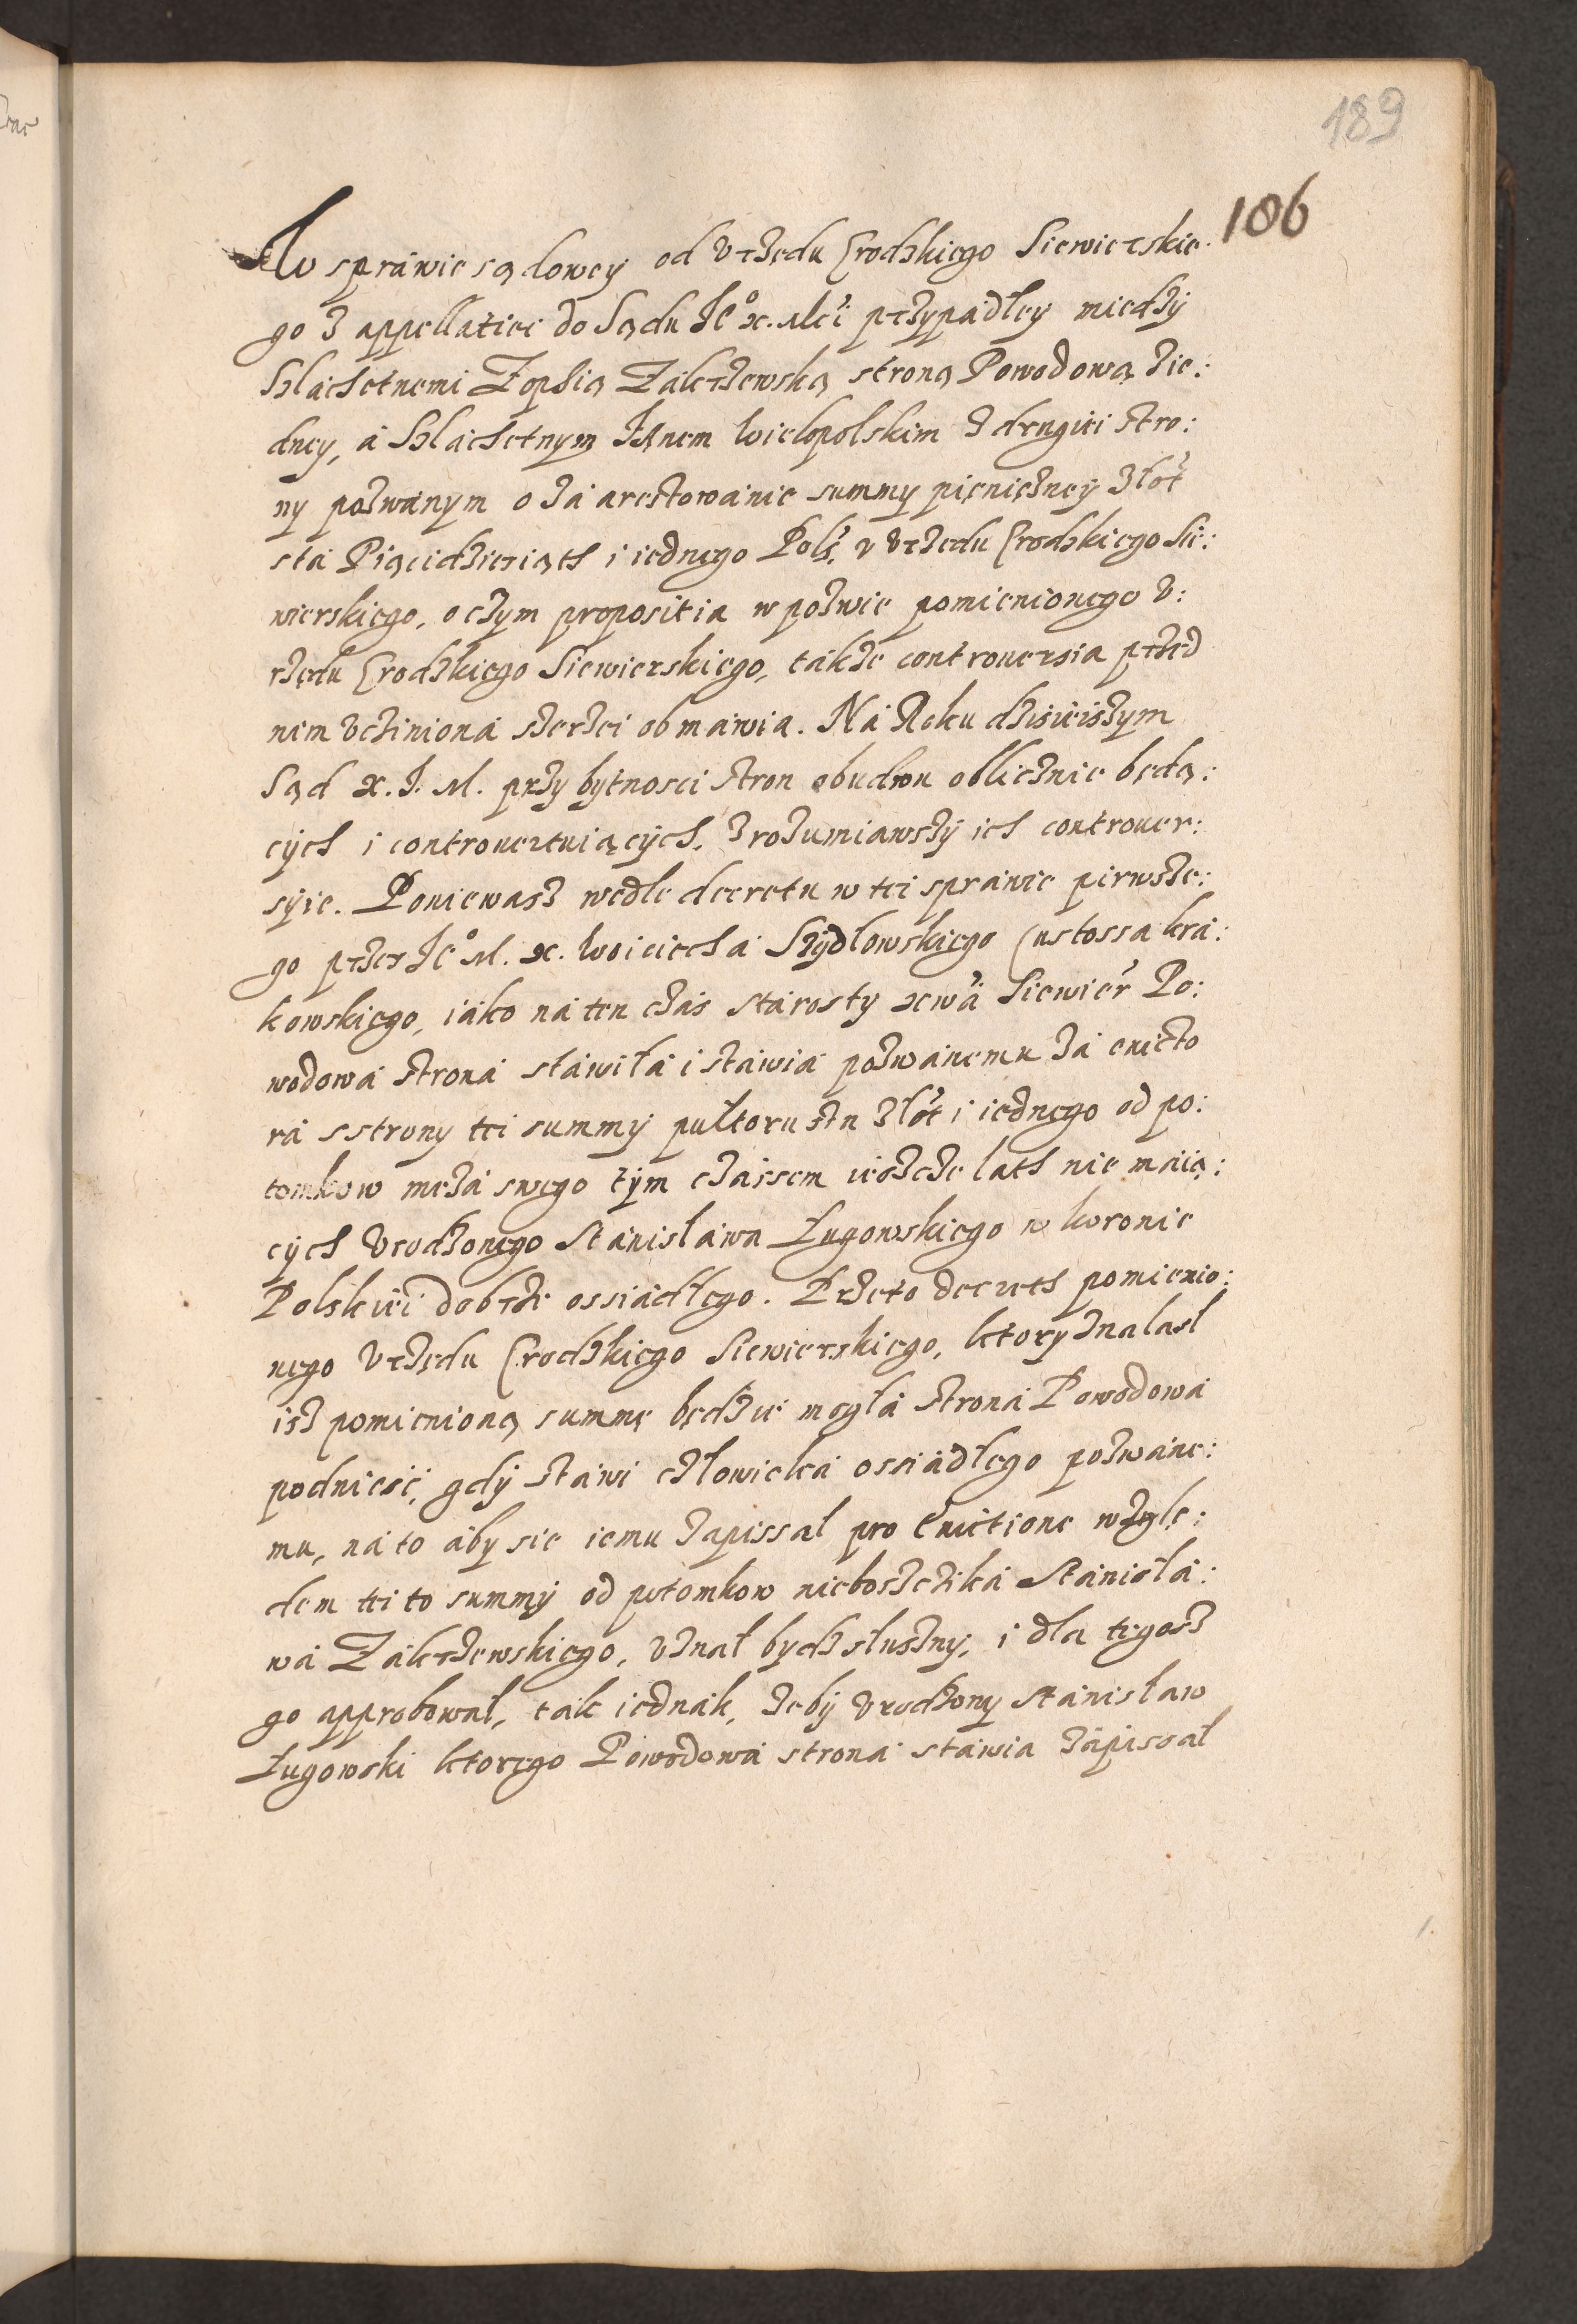 189
186
W sprawie sądowey od Vrzędu Grodzkiego Siewierskie.
go z appellatiei do Sądu Jeº x. Mći przypadłey miedzy
Szlachetnemi Zophią Zakrzewską stroną Powodową zie:
dney, á Szlachetnym Janem Wielopolskim z drugiei stro:
ny pozwanym o zá arestowánie summy pięnieżney złot́
stá Pięcidziesiąth i iednego Pols. v Vrzędu Grodzkiego Sie:
wierskiego, o czym propositia w pozwie pomienionego V:
rzędu Grodzkiego Siewierskiego, także controuersia przed
nim Vcziniona szerzei obmawia. Ná Roku dzisieiszym
Sąd X. J. M. przy bytnosci stron obudwu obliecznie będą:
cych i controuertuiących. zrozumiawszy ich controuer:
syie. Poniewasz wedle decretu w tei sprawie pirwsze:
go przez Jeº M. x. Woiciecha Szydlowskiego Custossa kra:
kowskiego, iáko ná ten czás Stárosty xcwá Siewier Po:
wodowá stroná stáwiłá i stáwia pozwánemu zá euicto
rá sstrony tei summy pułtoru stu złot́ i iednego od po:
tomkow mężá swego tym czássem ieszcze lath nie máią:
cych Vrodzonego Stánisłáwa Ługowskiego w koronie
Polskiei dobrze ossiádłego. Przeto decreth pomienio:
nego Vrzędu Grodzkiego Siewierskiego, ktory ználasł
isz pomienioną summę będzie mogłá stroná Powodowá
podniesć, gdy stáwi człowieká ossiádłego pozwáne:
mu, ná to áby się iemu zápissał pro Euictione wzglę:
dem tei to summy od potomkow nieboszcziká Stánisłá:
wá Zakrzewskiego, Vznał bydz słuszny, i dla tegosz
go approbował, tak iednak, żeby Vrodzony Stánisław
Ługowski ktorego Powodowá stroná stáwia zápissał